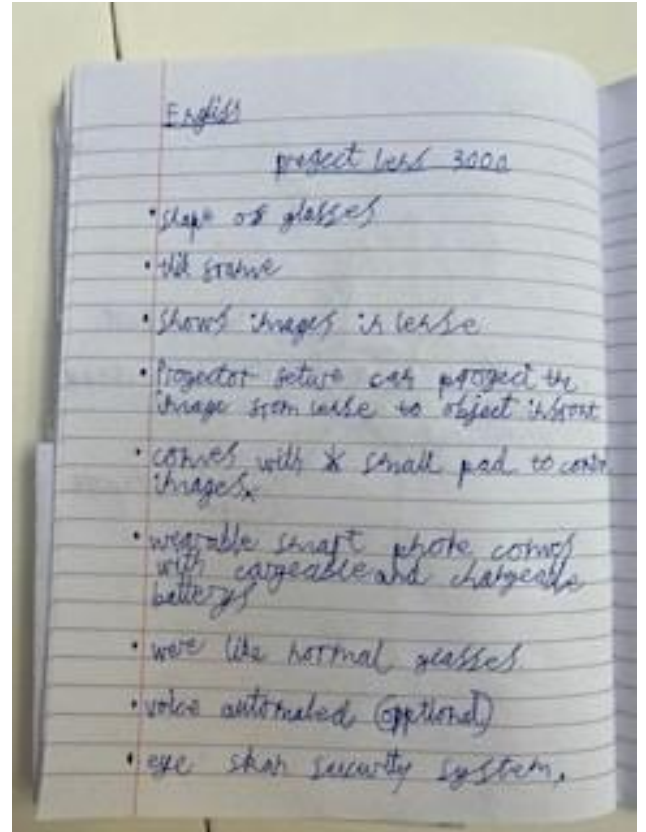 English
project lens 3000
• shape of glasses
• thik frame
• shows images in lense
• Projector feture can project the
image from lense to object infront
• comes with small pad to contr
images.
• wearable smart phone comes
with cargeable and chargeable
batterys
• were like normal glasses
• voice automated (opptional)
• eye skan security system.